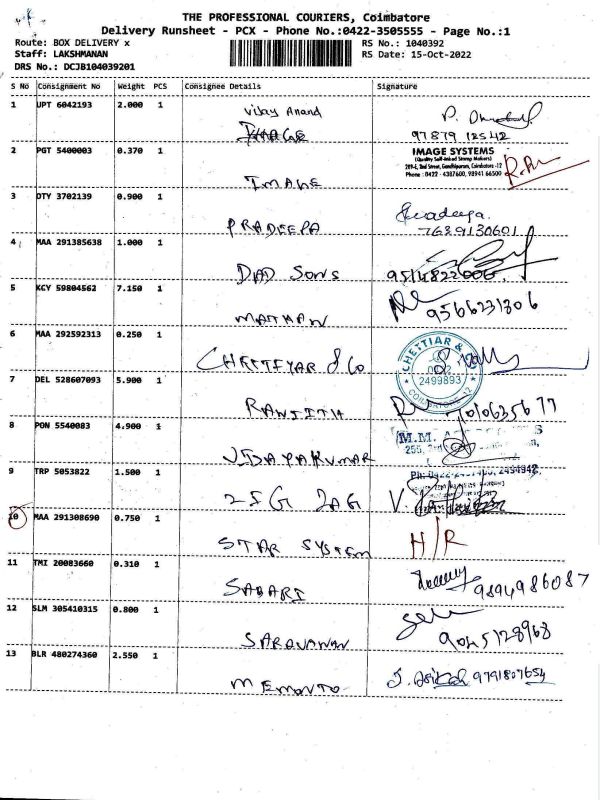 THE PROFESSIONAL COURIERS, Coimbatore
Delivery Runsheet - PCX - Phone No.:0422-3505555 - Page No.:1
Route: BOX DELIVERY x
RS No.: 1040392
Staff: LAKSHMANAN
RS Date: 15-Oct-2022
DRS No.: DCJB104039201
S No Consignment No Weight PCS Consignee Details Signature
1 UPT 6042193 2.000 1 Vijay Anand
97879 12542
2 PGT 5400003 0.370 1 IMAGE
IMAGE SYSTEMS
(Quality Self-Inked Stamp Makers)
Phone : 0422 - 4387600, 98941 66500
3 DTY 3702139 0.900 1 PRADEEPA
7639130601
4 MAA 291385638 1.000 1 DAD Sons
9514822006
5 KCY 59804562 7.150 1 MATHAN
9566231306
6 MAA 292592313 0.250 1 CHETTIYAR & Co
CHETTIAR &
2499893
COIMBATORE-12
7 DEL 528607093 5.900 1 RANJITH
7010635677
8 PON 5540083 4.900 1 VIJAYAKUMAR
M.M.
255,
9 TRP 5053822 1.500 1
2494942
10 MAA 291308690 0.750 1 STAR SYSTEM
H/R
11 TMI 20083660 0.310 1 SABARI
9894986087
12 SLM 305410315 0.800 1 SARAVANAN
9045128968
13 BLR 480274360 2.550 1 MEMONTO
9791807654